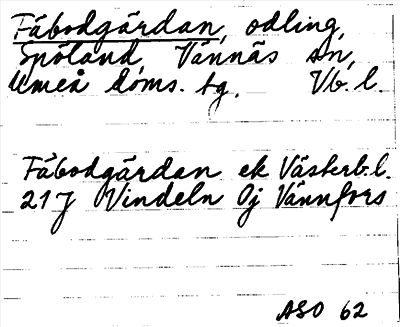 Fäbodgärdan, odling,
Spöland, Vännäs sn,
Umeå doms. tg. Vb. l.
Fäbodgärdan ek Västerb.l.
21 J Vindeln 0j Vännfors
ASO 62